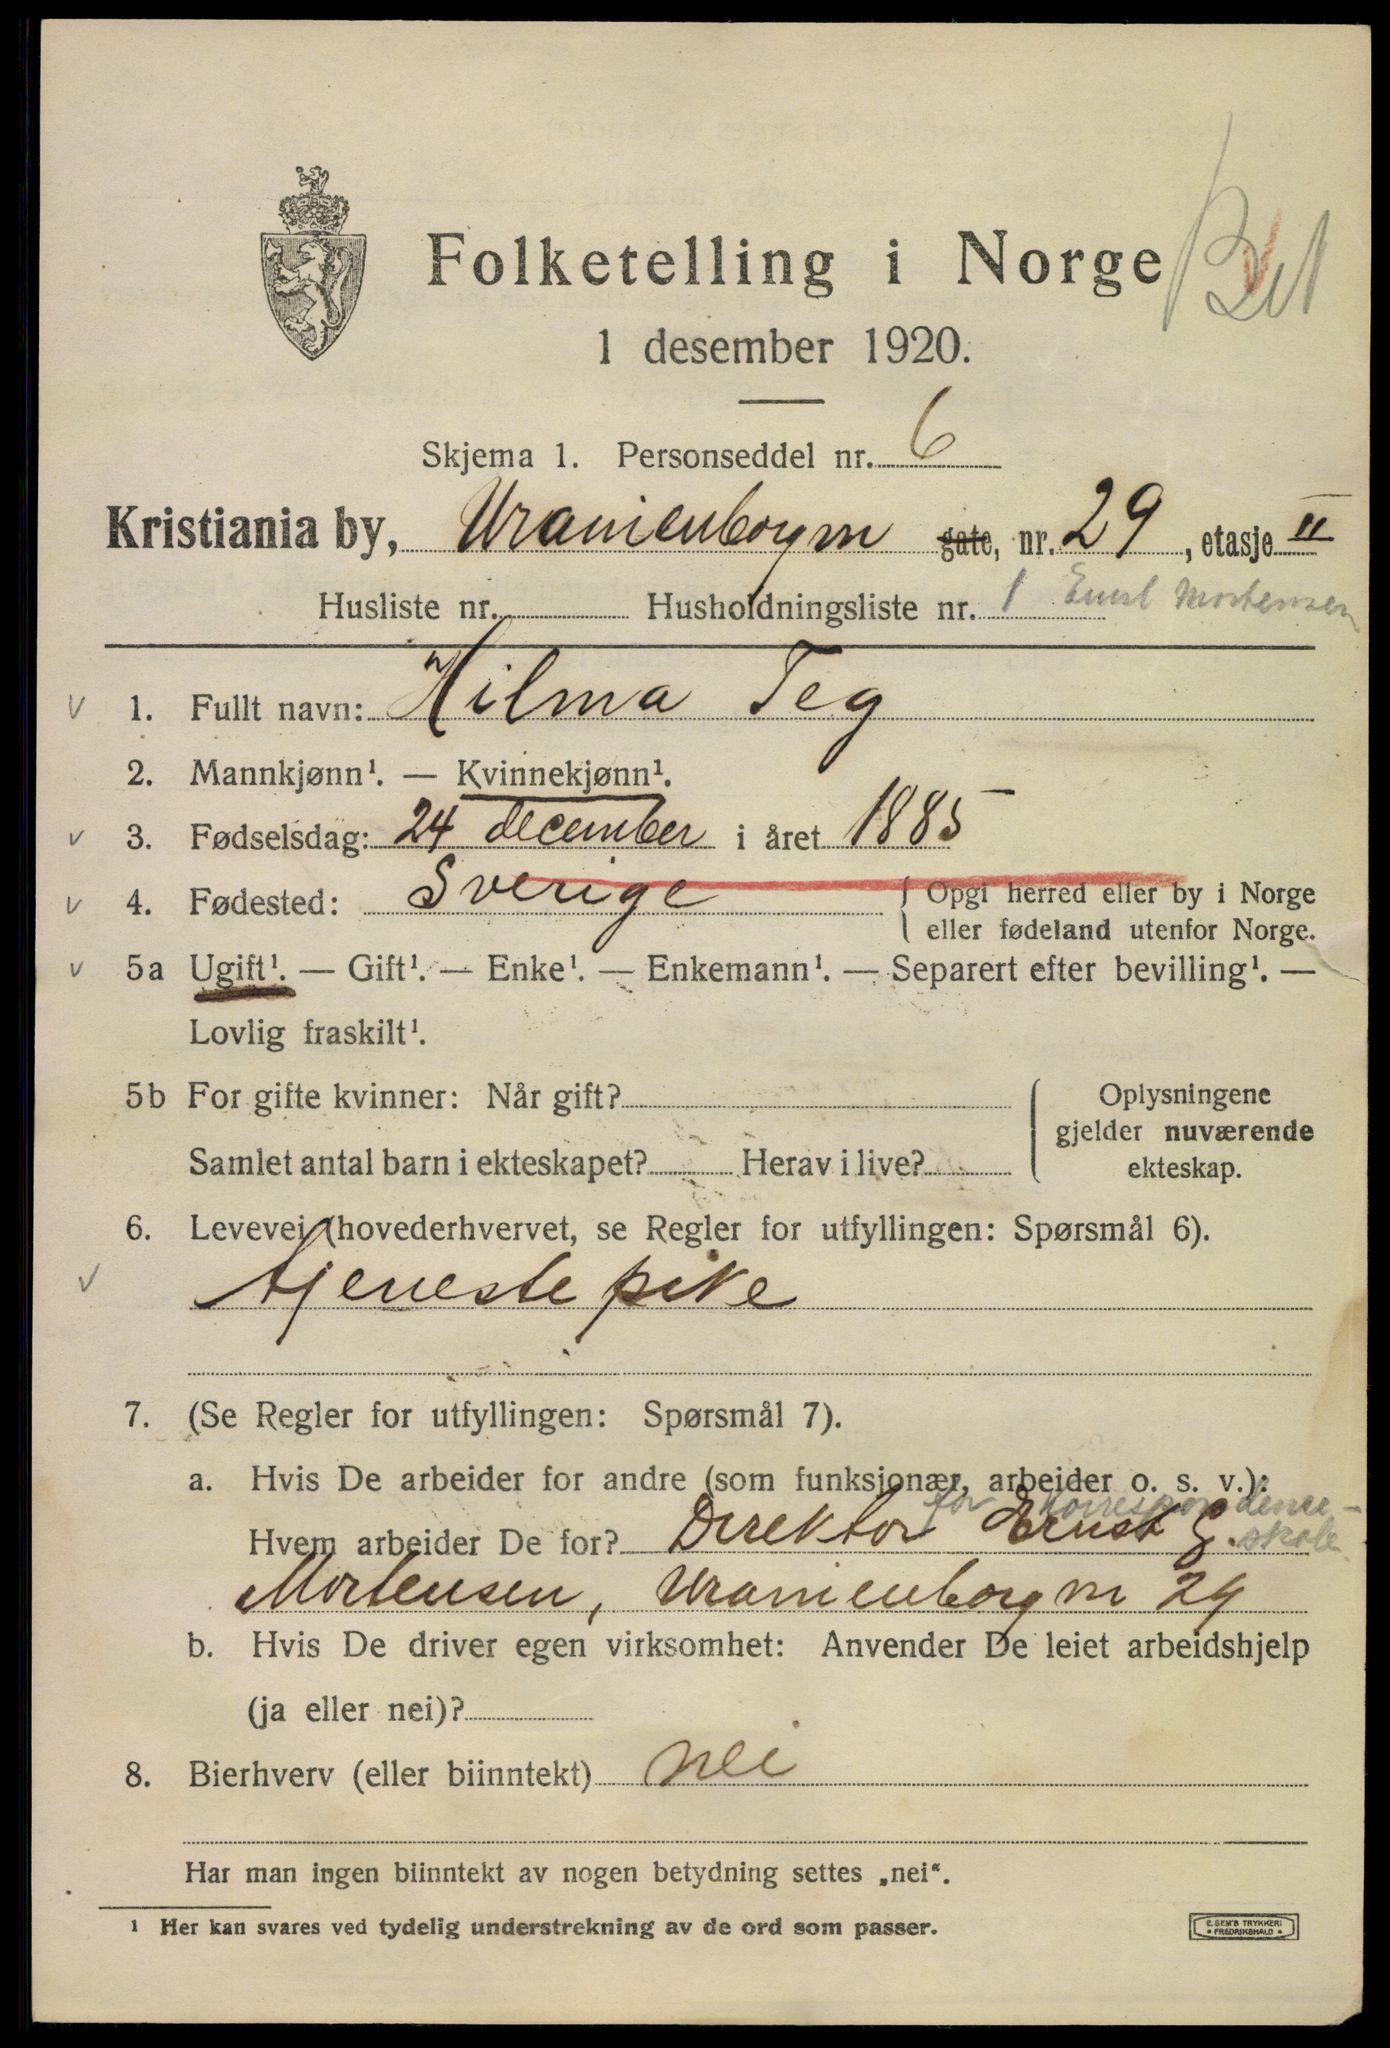 Folketelling i Norge
1 desember 1920.
Skjema 1. Personseddel nr. 6
Kristiania by, Uranienborgm gate, nr. 29, etasje II
Husliste nr. Husholdningsliste nr. 1 Ernst Mortensen
1. Fullt navn: Hilma Teg
2. Mannkjønn¹. — Kvinnekjønn¹.
3. Fødselsdag: 24 december i året 1885
4. Fødested: Sverige { Opgi herred eller by i Norge
eller fødeland utenfor Norge.
5a Ugift¹. — Gift¹. — Enke¹. — Enkemann¹. — Separert efter bevilling¹. —
Lovlig fraskilt¹.
5b For gifte kvinner: Når gift? { Oplysningene
gjelder nuværende
Samlet antal barn i ekteskapet? Herav i live? ekteskap.
6. Levevei (hovederhvervet, se Regler for utfyllingen: Spørsmål 6).
tjeneste pike
7. (Se Regler for utfyllingen: Spørsmål 7).
a. Hvis De arbeider for andre (som funksjonær, arbeider o. s. v.):
for korrespondence-
Hvem arbeider De for? Direktor Ernst G. skole
Mortensen, Uranienborgm 29
b. Hvis De driver egen virksomhet: Anvender De leiet arbeidshjelp
(ja eller nei)?
8. Bierhverv (eller biinntekt) nei
Har man ingen biinntekt av nogen betydning settes „nei“.
¹ Her kan svares ved tydelig understrekning av de ord som passer.
E. SEM'S TRYKKERI
FREDRIKSHALD